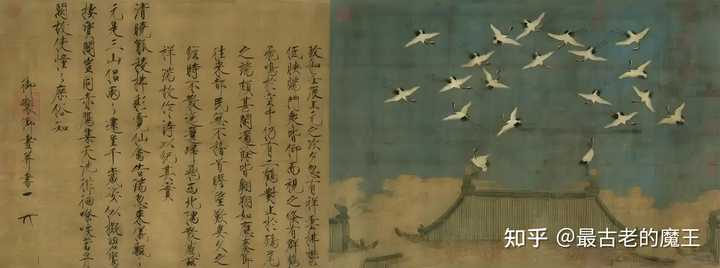 政和壬辰上元之次夕忽有祥雲拂鬱
低映端門衆皆仰而視之倏有群鶴
飛鳴於空中仍有二鶴對止於鴟尾
之端頗甚閒適餘皆翱翔如應奏節
往來都民無不稽首瞻望歎異久之
經時不散迤邐歸飛西北隅散感茲
祥瑞故作詩以紀其實
清曉觚稜拂彩霓仙禽告瑞忽來儀飄〻
元是三山侶兩〻還呈千歲姿似擬碧鸞
棲寶閣豈同赤鴈集天池徘徊嘹唳當丹
闕故使憧〻庶俗知
御製御畫并書
知乎 @最古老的魔王